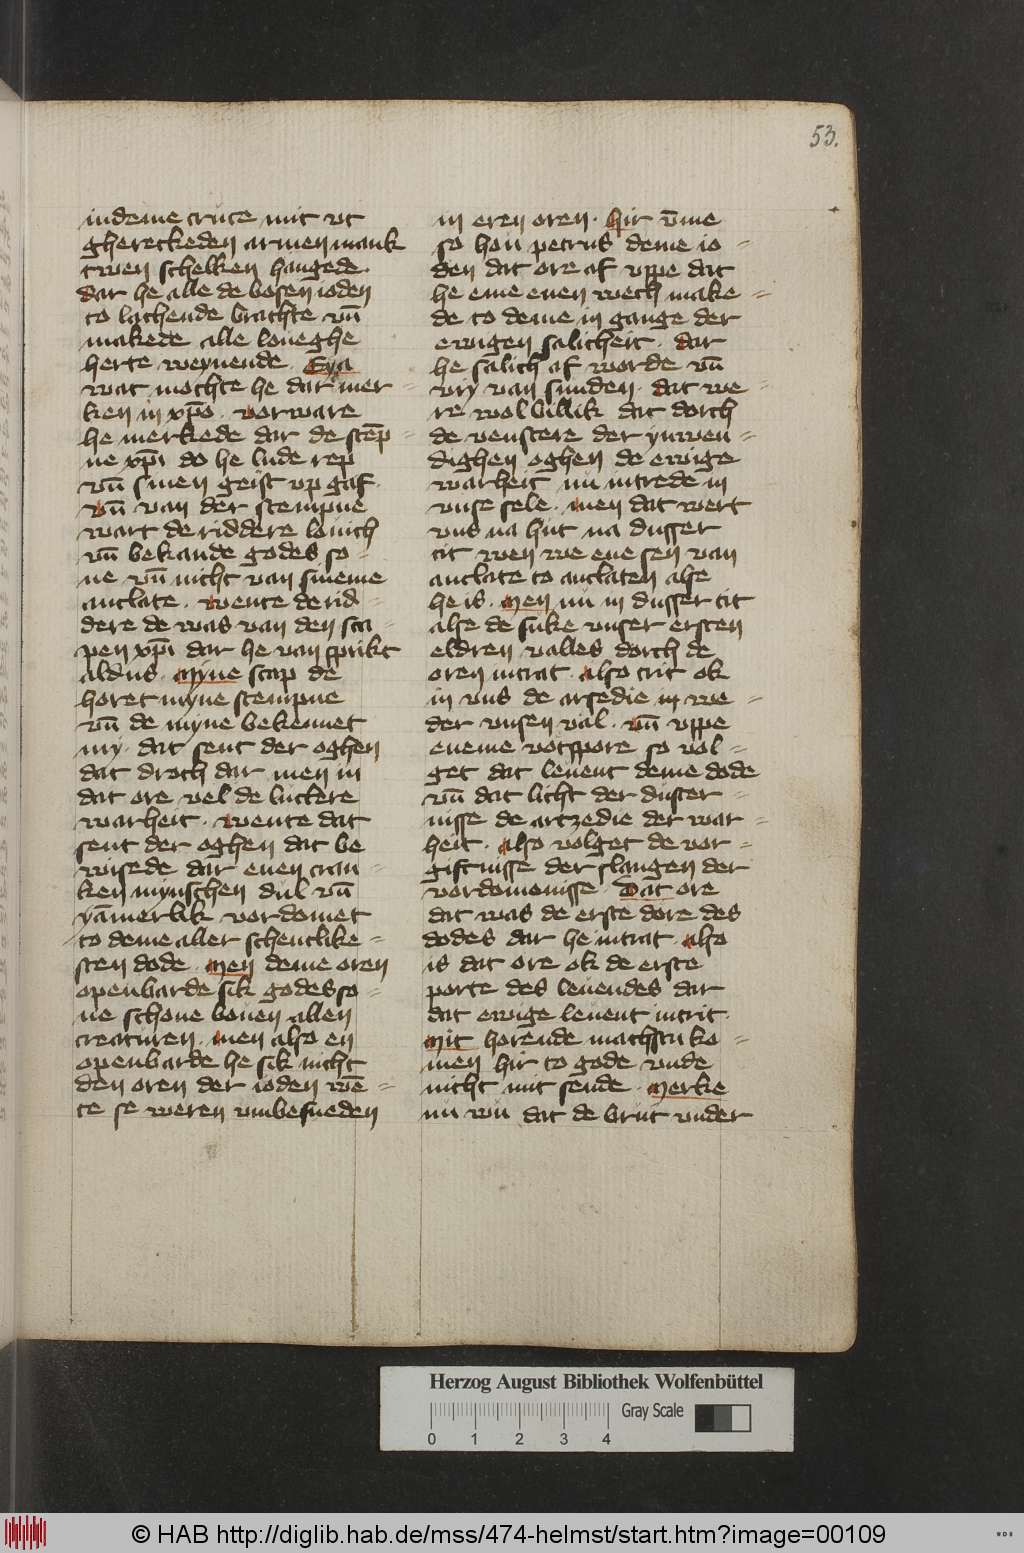 53.
indeme cruce mit vt
ghereckeden armen mank
twen schelken hangede.
dar he alle de bosen ioden
to lachende brachte vn̄
makede alle loueghe
herte weynende. Eya
wat mochte he dar mer-
ken in xp̄o. vorware
he merkede dar de stēp-
ne xp̄i do he lude rep
vn̄ sinen geist vp gaf.
vn̄ van der stempne
wart de riddere louich
vn̄ bekande godes so-
ne vn̄ nicht van sineme
antlate. wente de rid-
dere de was van den sca-
pen xp̄i dar he van sprikt
aldus. Myne scap de
horet myne stempne
vn̄ de myne bekennet
my. dat sent der oghen
dat droch dar men in
dat ore vel de luckere
warheit. wente dat
sent der oghen dat be
wisede dar enen cran-
ken mynschen dul vn̄
yāmerlik vordomet
to deme aller schentlike-
sten dode. Men deme oren
openbarde sik godes so-
ne schone bouen allen
creaturen. men also en
openbarde he sik nicht
den oren der ioden wē-
te se weren vmbesneden
in eren oren. hir v̄me
so hou petrus deme io-
den dat ore af vppe dat
he eme enen wech make-
de to deme in gange der
ewigen salicheit. dar
he salich af worde vn̄
vry van sunden. dat we-
re wol billik dat dorch
de venstere der ynwen-
dighen oghen de ewige
warheit nu intrede in
vnse sele. men dat wert
vns na hut na dusser
tit wen we ene sen van
antlate to antlaten alse
he is. Men nu in dusser tit
alse de suke vnser ersten
eldren valles dorch de
oren intrat. also trit ok
in vns de arsedie in we-
der vnsen val. vn̄ vppe
eneme votspore so vol-
get dat leuent deme dode
vn̄ dat licht der duster-
nisse de artzedie der war-
heit. also volget de vor-
giftnisse der slangen der
vordomenisse. Dat ore
dat was de erste dore des
dodes dar he intrat. also
is dat ore ok de erste
porte des leuendes dar
dat ewige leuent intrit.
Mit horende machstu ko-
men hir to gode vnde
nicht mit sende. Merke
nu wu dat de brut vnder
Herzog August Bibliothek Wolfenbüttel
Gray Scale
0 1 2 3 4
© HAB http://diglib.hab.de/mss/474-helmst/start.htm?image=00109